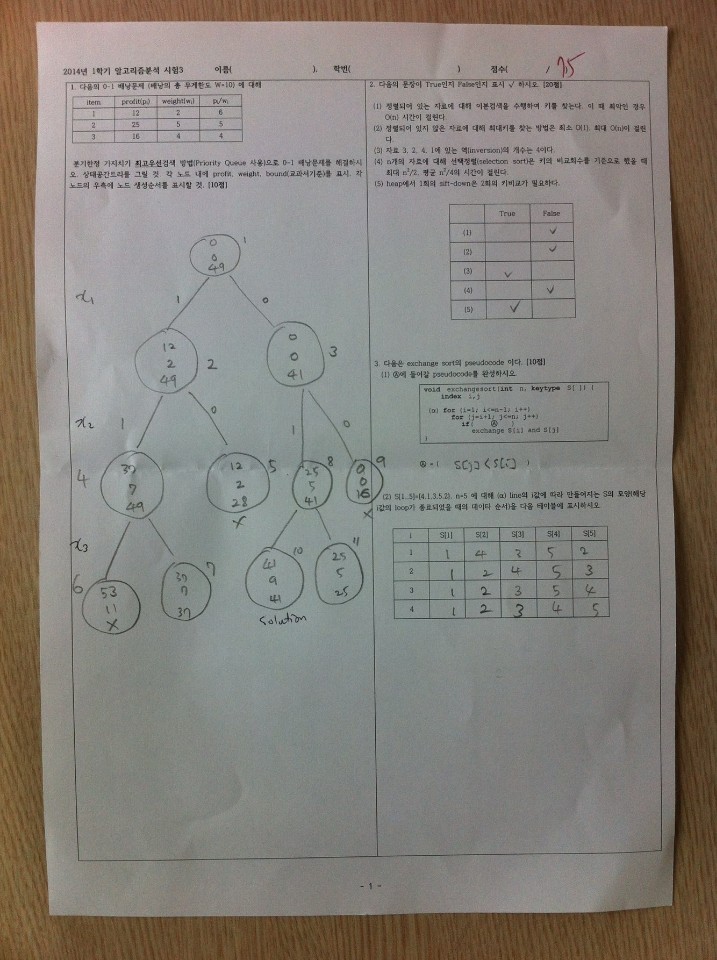 2014년 1학기 알고리즘분석 시험3 이름( ), 학번( ) 점수( / 75
1. 다음의 0-1 배낭문제 (배낭의 총 무게한도 W=10) 에 대해
item profit(pᵢ) weight(wᵢ) pᵢ/wᵢ
1 12 2 6
2 25 5 5
3 16 4 4
분기한정 가지치기 최고우선검색 방법(Priority Queue 사용)으로 0-1 배낭문제를 해결하시
오. 상태공간트리를 그릴 것. 각 노드 내에 profit, weight, bound(교과서기준)를 표시. 각
노드의 우측에 노드 생성순서를 표시할 것. [10점]
0 1
0
49
x₁ 1 0
12
2 2
49
0 3
0
41
x₂ 1 0 1 0
4 37
7
49
12 5
2
28
X
25 8
5
41
0 9
0
16
X
x₃
6 53
11
X
37 7
7
37
41 10
9
41
Solution
25 11
5
25
2. 다음의 문장이 True인지 False인지 표시 ✓ 하시오. [20점]
(1) 정렬되어 있는 자료에 대해 이분검색을 수행하여 키를 찾는다. 이 때 최악인 경우
O(n) 시간이 걸린다.
(2) 정렬되어 있지 않은 자료에 대해 최대키를 찾는 방법은 최소 O(1), 최대 O(n)이 걸린
다.
(3) 자료 3, 2, 4, 1에 있는 역(inversion)의 개수는 4이다.
(4) n개의 자료에 대해 선택정렬(selection sort)은 키의 비교회수를 기준으로 했을 때
최대 n²/2, 평균 n²/4의 시간이 걸린다.
(5) heap에서 1회의 sift-down은 2회의 키비교가 필요하다.
True False
(1) ✓
(2) ✓
(3) ✓
(4) ✓
(5) ✓
3. 다음은 exchange sort의 pseudocode 이다. [10점]
(1) Ⓐ에 들어갈 pseudocode를 완성하시오.
void exchangesort(int n, keytype S[ ]) {
index i,j
(α) for (i=1; i<=n-1; i++)
for (j=i+1; j<=n; j++)
if( Ⓐ )
exchange S[i] and S[j]
}
Ⓐ = ( S[j] < S[i] )
(2) S[1..5]=[4,1,3,5,2], n=5 에 대해 (α) line의 i값에 따라 만들어지는 S의 모양(해당
i값의 loop가 종료되었을 때의 데이타 순서)을 다음 테이블에 표시하시오.
i S[1] S[2] S[3] S[4] S[5]
1 1 4 3 5 2
2 1 2 4 5 3
3 1 2 3 5 4
4 1 2 3 4 5
- 1 -